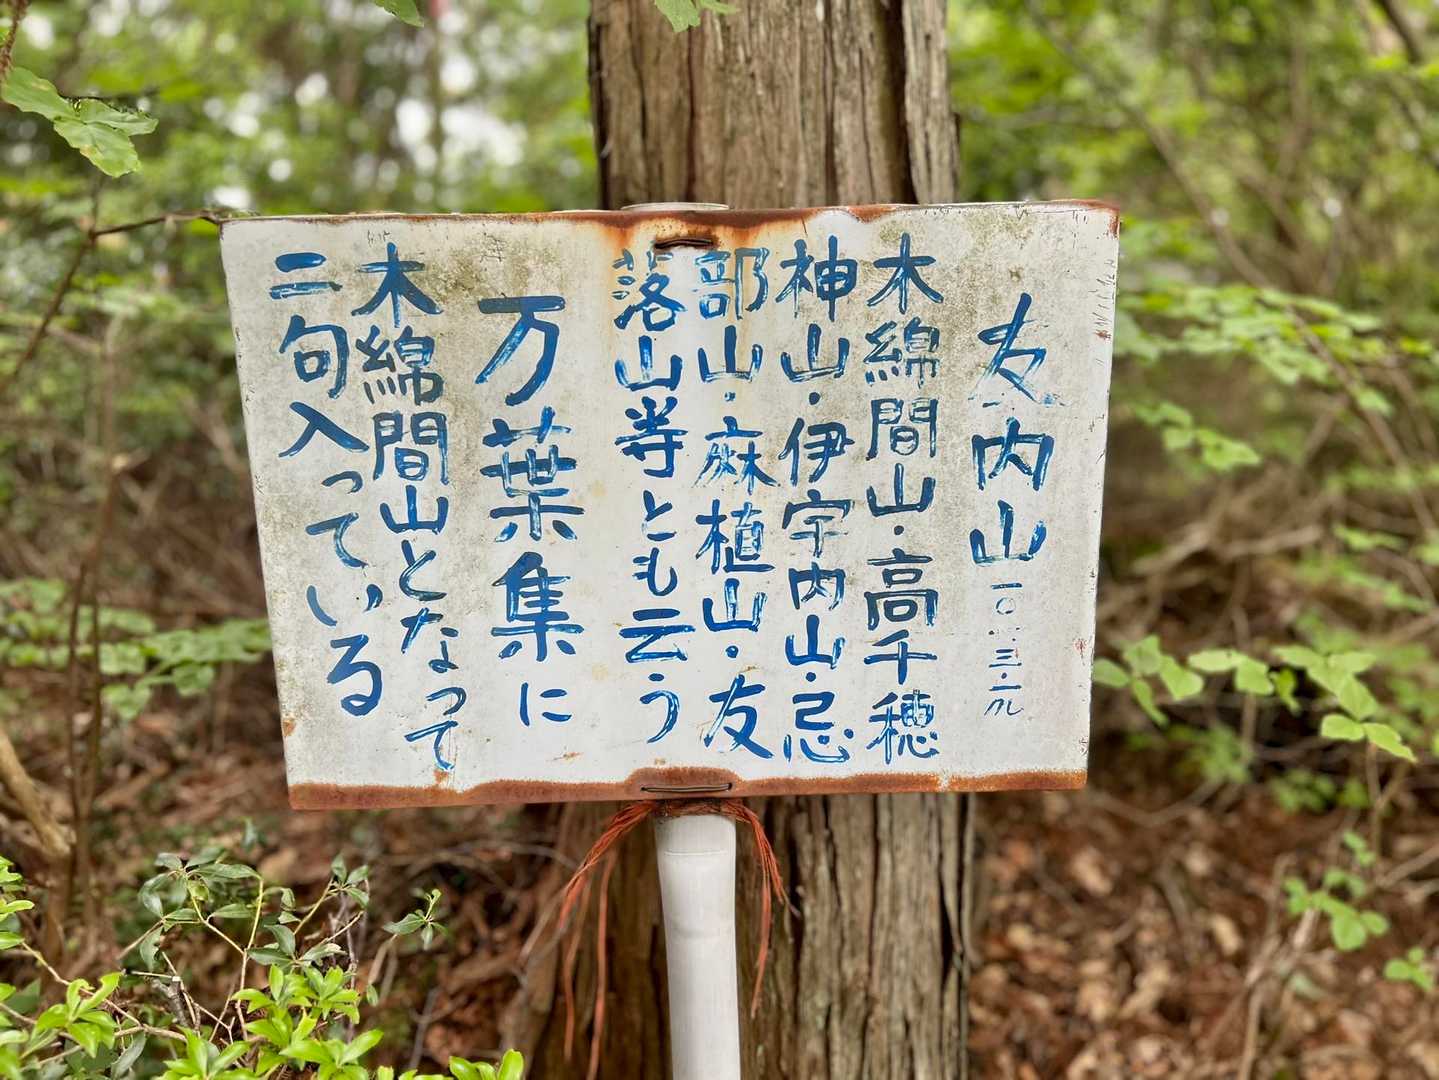 友内山 一〇.三.一九
木綿間山・高千穂
神山・伊宇内山・忌
部山・麻植山・友
落山等とも云う
万葉集に
木綿間山となって
二句入っている